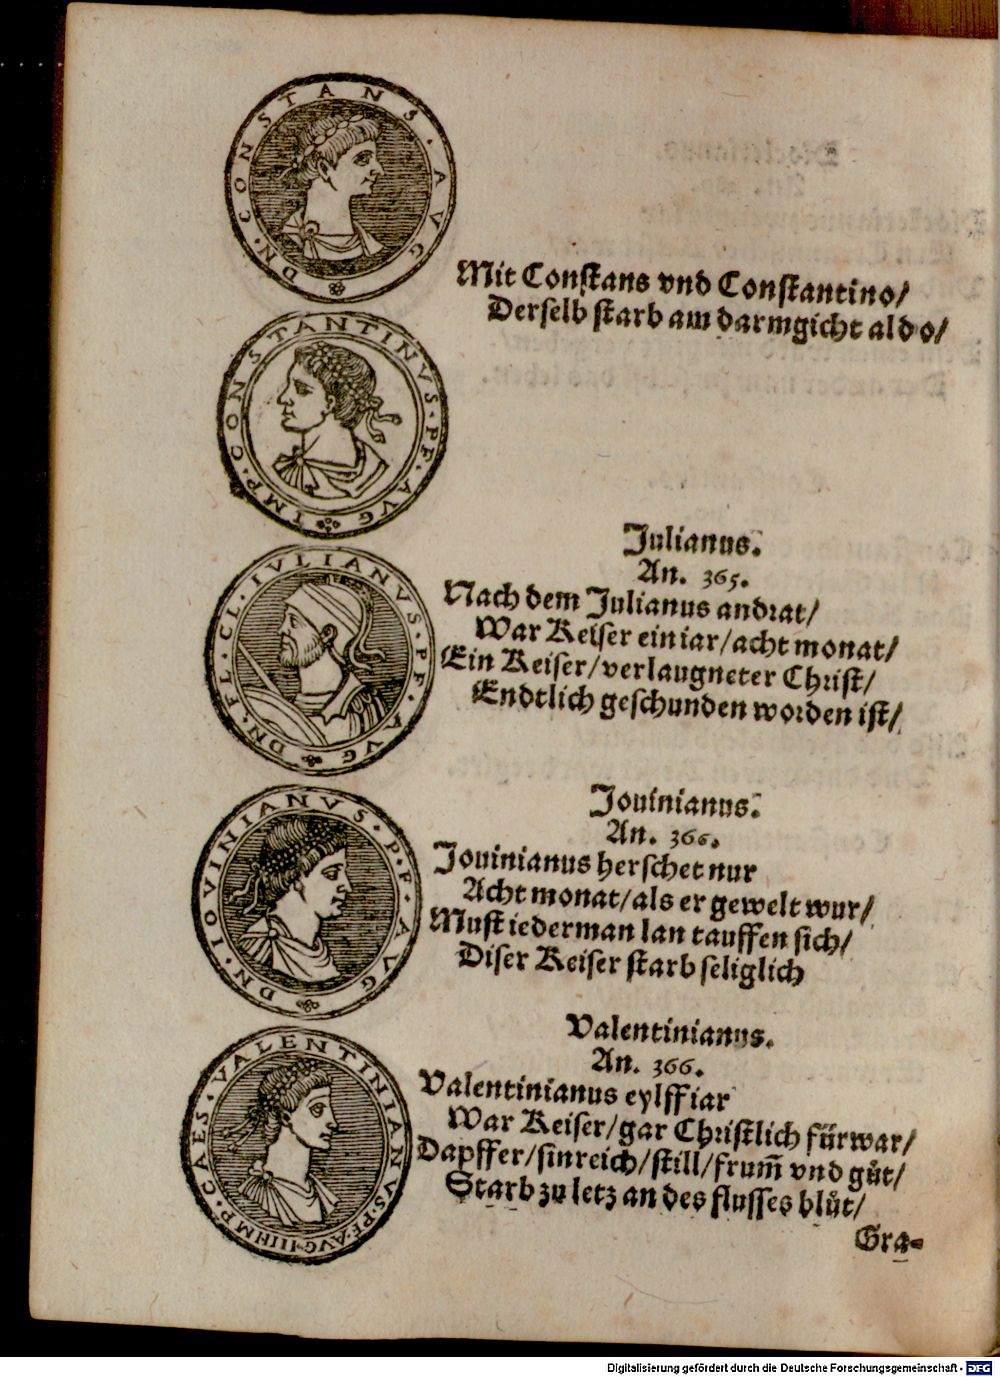 DN · CONSTANS · AVG
Mit Constans vnd Constantino/
Derselb starb am darmgicht aldo/
IMP · CONSTANTINVS · PF · AVG
Julianus.
An. 365.
DN · FL · CL · IVLIANVS · P · F · AVG
Nach dem Julianus andrat/
War Keiser ein iar/acht monat/
Ein Keiser/verlaugneter Christ/
Endtlich geschunden worden ist/
Jouinianus.
An. 366.
DN · IOVINIANVS · P · F · AVG
Jouinianus herschet nur
Acht monat/als er gewelt wur/
Must iederman lan tauffen sich/
Diser Keiser starb seliglich
Valentinianus.
An. 366.
CAES · VALENTINIANVS · PF · AVG
Valentinianus eylff iar
War Keiser/gar Christlich fürwar/
Dapffer/sinreich/still/frum̃ vnd gůt/
Starb zu letz an des flusses blůt/
Gra-
Digitalisierung gefördert durch die Deutsche Forschungsgemeinschaft - DFG